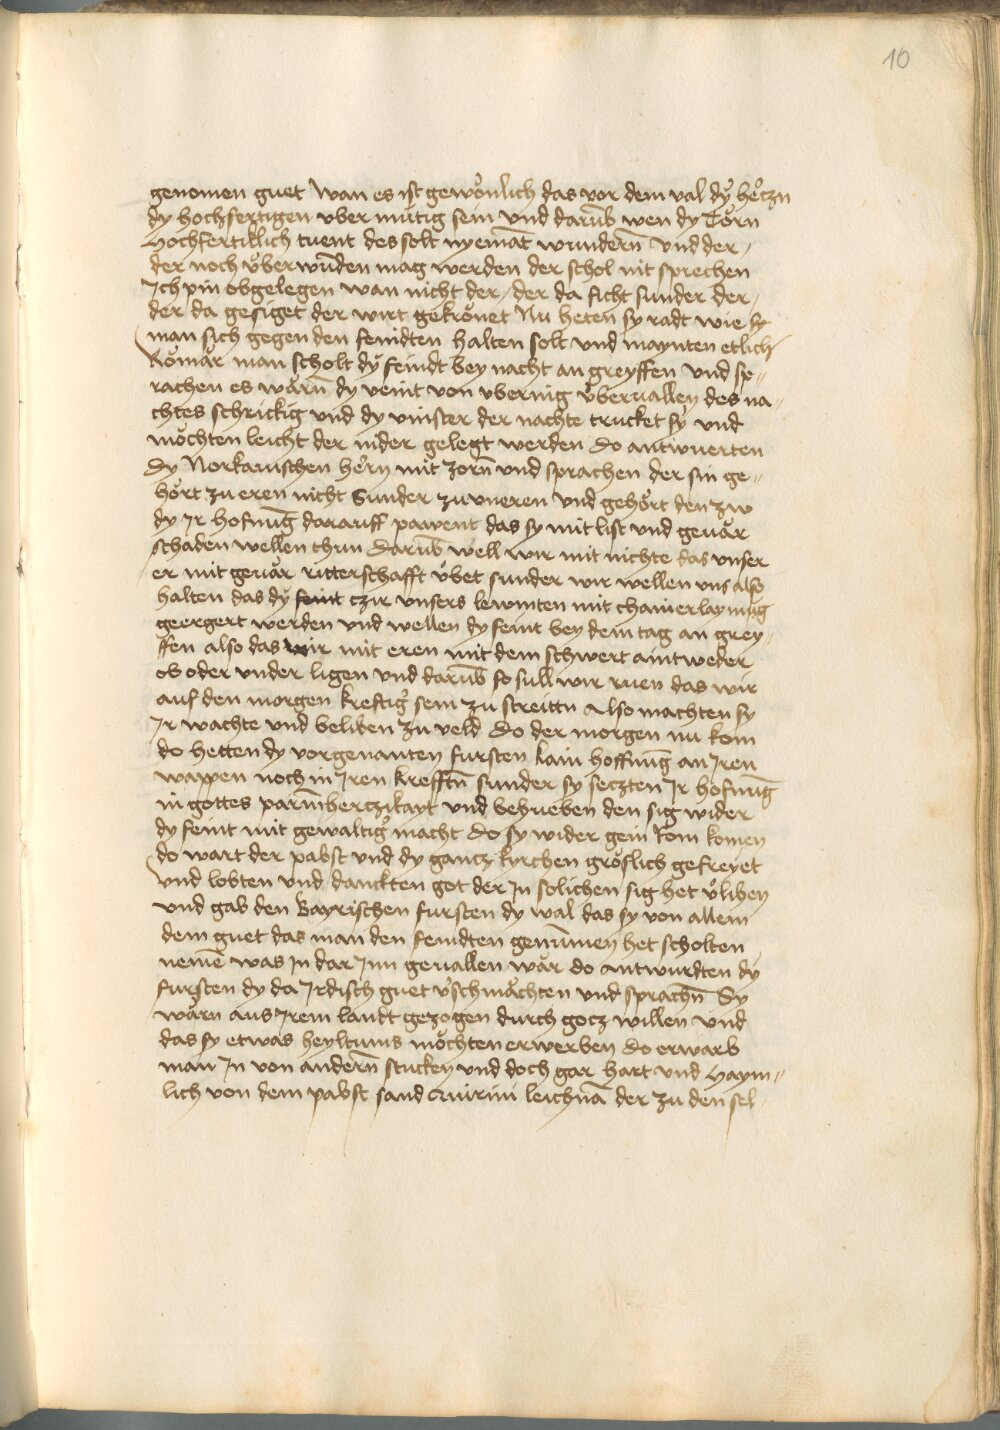 10
genomen guet Wan es ist gewönlich das vor dem val dÿ hérczn
dy hochfertigen vber mütig sein Vnd darūb wen dy Torn
hochfertiklich tuent des solt nyemāt wundern̄ Vnd der /
der noch vberwūden mag werden der schol nit sprechen
Ich pin obgelegen wan nicht der / der da ficht sunder der /
der da gesiget der wirt gekrönet Nu heten sy radt wie sy
man sich gegen den feindten halten solt vnd maynten etlich
Römär man scholt dÿ feindt bey nacht an greyffen vnd sp//
rachen es wärn̄ dy veint von vbernig vberuallen des na//
chtes schrickig vnd dy vinster der nachte trucket sy vnd
möchten leicht der nider gelegt werden do antwuerten
dy Norkauischen hern mit zorn̄ vnd sprachen der sin ge//
hört zu eren nicht Sunder zu vneren Vnd gehört den zw
dy Ir hofnūg darauff pawent das sy mit list vnd geuär
schaden wellen thun Darūb well wir mit nichte das vnser
er mit geuär ritterschafft vbet sunder wir wellen vns also
halten das dÿ feint czir vnsers lewmten mit
geergert werden vnd wellen dy feint bey dem tag an grey//
ffen also das wir mit eren mit dem schwert aintweder
ob oder vnder ligen vnd darūb so sull wir ruen das wir
auf den morgen kreftig sein zu streittn Also machten sy
Ir wachte vnd beliben zu veld Do der morgen nu kom
do hetten dy vorgenanten fursten kain hoffnūg an Iren
wappen noch in Iren krefftn̄ sunder sy seczten Ir hofnūg
in gottes parmherczikayt vnd behueben den sig wider
dy feint mit gewaltig macht Do sy wider gein Rom komen
do wart der pabst vnd dy gancz kyrchen gröslich gefreyet
vnd lobten vnd danckten got der In solichen sig het vlihen
vnd gab den Bayrischen fursten dy wal das sy von allem
dem guet das man den feindten genūmen het scholten
nemē was In dar Inn geuallen wär do antwurdten dy
fursten dy da Irdisch guet vschmächten vnd sprachn̄ Sy
wärn aus Irem landt gezogen durch gocz willen vnd
das sy etwas heyltums möchten erwerben do erwarb
man In von andern̄ stucken vnd doch gar hart vnd haym//
lich von dem pabst sand Quirini leichnā der zu den sel